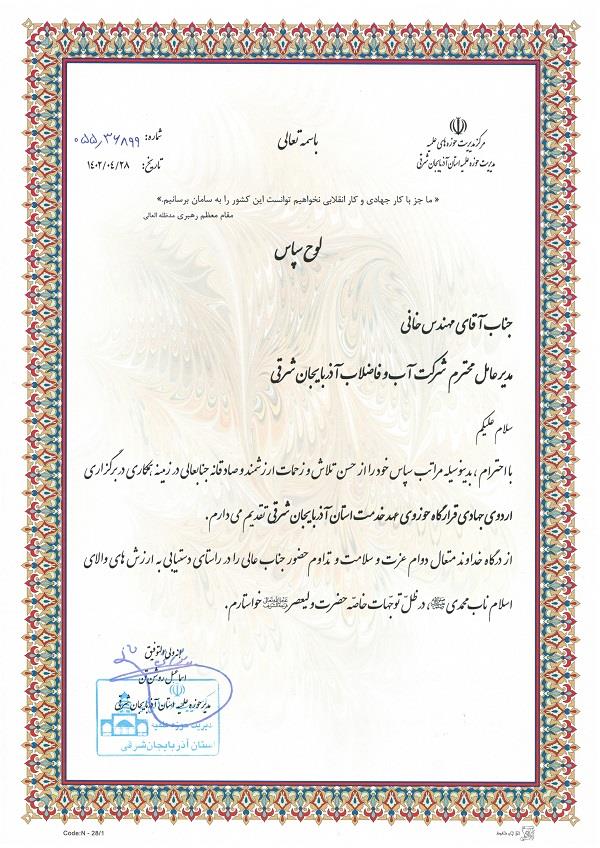 باسمه تعالی
مرکز مدیریت حوزه های علمیه
مدیریت حوزه علمیه استان آذربایجان شرقی
شماره: ۰۵۵٫۳۶۸۹۹
تاریخ: ۱۴۰۲/۰۴/۲۸
« ما جز با کار جهادی و کار انقلابی نخواهیم توانست این کشور را به سامان برسانیم.»
مقام معظم رهبری مدظله العالی
لوح سپاس
جناب آقای مهندس خانی
مدیر عامل محترم شرکت آب و فاضلاب آذربایجان شرقی
سلام علیکم
با احترام ، بدینوسیله مراتب سپاس خود را از حسن تلاش و زحمات ارزشمند و صادقانه جنابعالی در زمینه همکاری در برگزاری
اردوی جهادی قرارگاه حوزوی عهد خدمت استان آذربایجان شرقی تقدیم می دارم.
از درگاه خداوند متعال دوام عزت و سلامت و تداوم حضور جناب عالی را در راستای دستیابی به ارزش های والای
اسلام ناب محمدی ﷺ در ظلّ توجهات خاصّه حضرت ولیعصر خواستارم.
هو ولی التوفیق
اسماعیل روشن تن
مدیر حوزه علمیه استان آذربایجان شرقی
مدیریت حوزه علمیه
استان آذربایجان شرقی
Code:N - 28/1